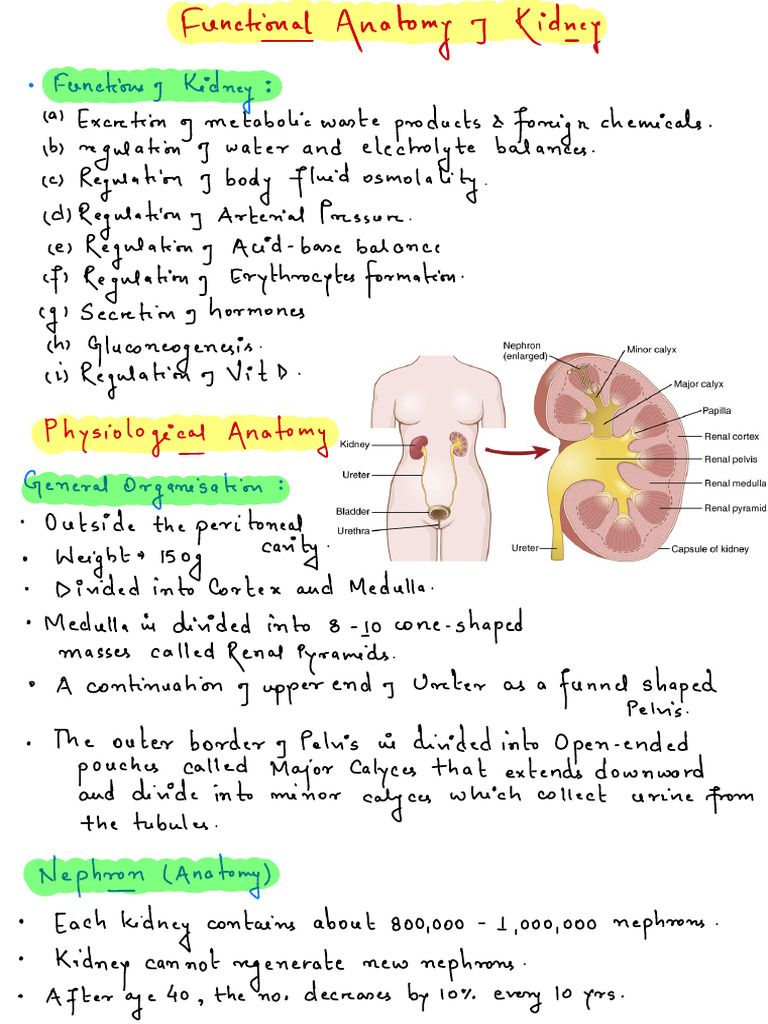 Functional Anatomy of Kidney
• Functions of Kidney :
(a) Excretion of metabolic waste products & foreign chemicals.
(b) regulation of water and electrolyte balances.
(c) Regulation of body fluid osmolality.
(d) Regulation of Arterial Pressure.
(e) Regulation of Acid-base balance
(f) Regulation of Erythrocytes formation.
(g) Secretion of hormones
(h) Gluconeogenesis.
(i) Regulation of Vit D.
Nephron
(enlarged)
Minor calyx
Major calyx
Papilla
Renal cortex
Renal pelvis
Renal medulla
Renal pyramid
Capsule of kidney
Ureter
Kidney
Ureter
Bladder
Urethra
Physiological Anatomy
General Organisation :
• Outside the peritoneal
cavity.
• Weight → 150g
• Divided into Cortex and Medulla.
• Medulla is divided into 8-10 cone-shaped
masses called Renal Pyramids.
• A continuation of upper end of Ureter as a funnel shaped
Pelvis.
• The outer border of Pelvis is divided into Open-ended
pouches called Major Calyces that extends downward
and divide into minor calyces which collect urine from
the tubules.
Nephron (Anatomy)
• Each kidney contains about 800,000 - 1,000,000 nephrons.
• Kidney cannot regenerate new nephrons.
• After age 40, the no. decreases by 10% every 10 yrs.